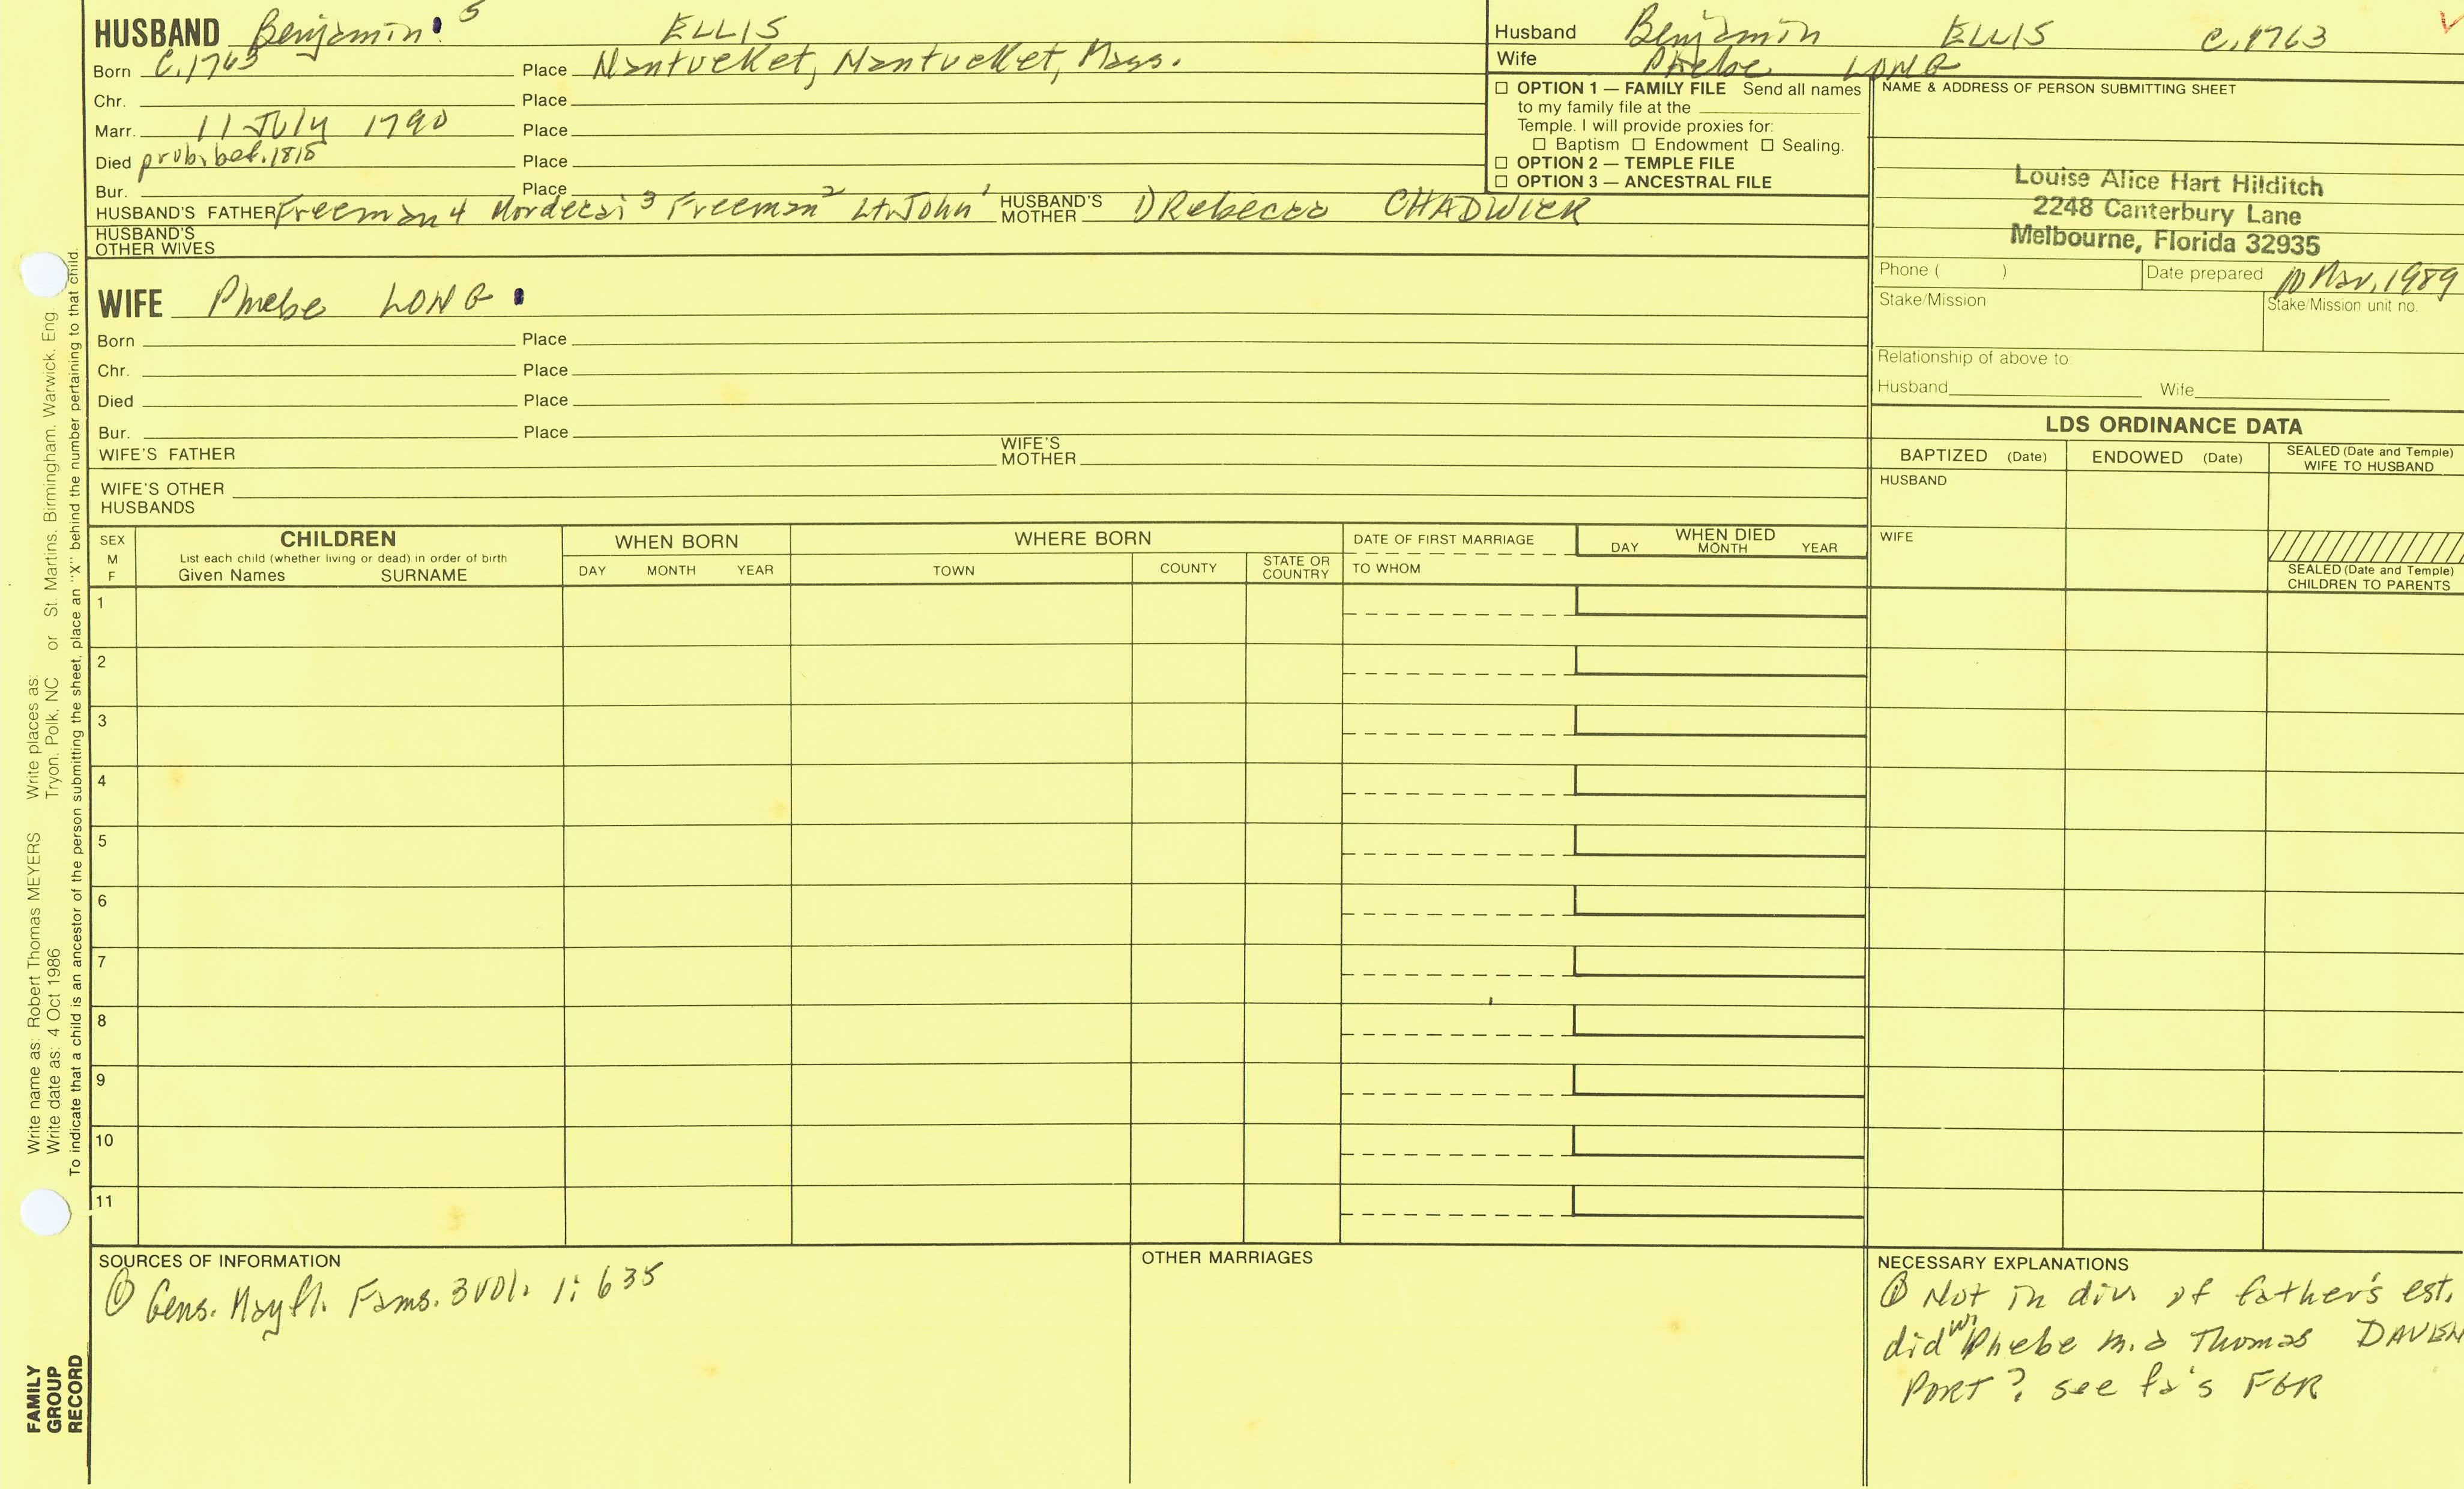 HUSBAND Benjamin 5 ELLIS
Born C.1763 Place Nantucket, Nantucket, Mass.
Chr. Place
Marr. 11 July 1790 Place
Died prob. bef. 1815 Place
Bur. Place
HUSBAND'S FATHER Freeman 4 Mordecai 3 Freeman 2 Lt. John 1 HUSBAND'S MOTHER 1) Rebecca CHADWICK
HUSBAND'S OTHER WIVES
WIFE Phebe LONG
Born Place
Chr. Place
Died Place
Bur. Place
WIFE'S FATHER WIFE'S MOTHER
WIFE'S OTHER HUSBANDS
Husband Benjamin ELLIS C.1763
Wife Phebe LONG
☐ OPTION 1 — FAMILY FILE Send all names
to my family file at the
Temple. I will provide proxies for:
☐ Baptism ☐ Endowment ☐ Sealing.
☐ OPTION 2 — TEMPLE FILE
☐ OPTION 3 — ANCESTRAL FILE
NAME & ADDRESS OF PERSON SUBMITTING SHEET
Louise Alice Hart Hilditch
2248 Canterbury Lane
Melbourne, Florida 32935
Phone ( ) Date prepared 10 Mar, 1989
Stake/Mission Stake/Mission unit no.
Relationship of above to
Husband Wife
LDS ORDINANCE DATA
BAPTIZED (Date) ENDOWED (Date) SEALED (Date and Temple) WIFE TO HUSBAND
HUSBAND
WIFE
SEALED (Date and Temple)
CHILDREN TO PARENTS
SEX M F CHILDREN WHEN BORN WHERE BORN DATE OF FIRST MARRIAGE WHEN DIED
List each child (whether living or dead) in order of birth
Given Names SURNAME DAY MONTH YEAR TOWN COUNTY STATE OR COUNTRY TO WHOM DAY MONTH YEAR
1
2
3
4
5
6
7
8
9
10
11
SOURCES OF INFORMATION
① Gens. Mayfl. Fams. 3 vol. 1: 635
OTHER MARRIAGES
NECESSARY EXPLANATIONS
① Not in div of father's est.
did wi Phebe m. 2 Thomas DAVEN
PORT? see fa's FGR
Write name as: Robert Thomas MEYERS Write places as:
Write date as: 4 Oct 1986 Tryon, Polk, NC or St. Martins, Birmingham, Warwick, Eng.
To indicate that a child is an ancestor of the person submitting the sheet, place an "X" behind the number pertaining to that child.
FAMILY
GROUP
RECORD